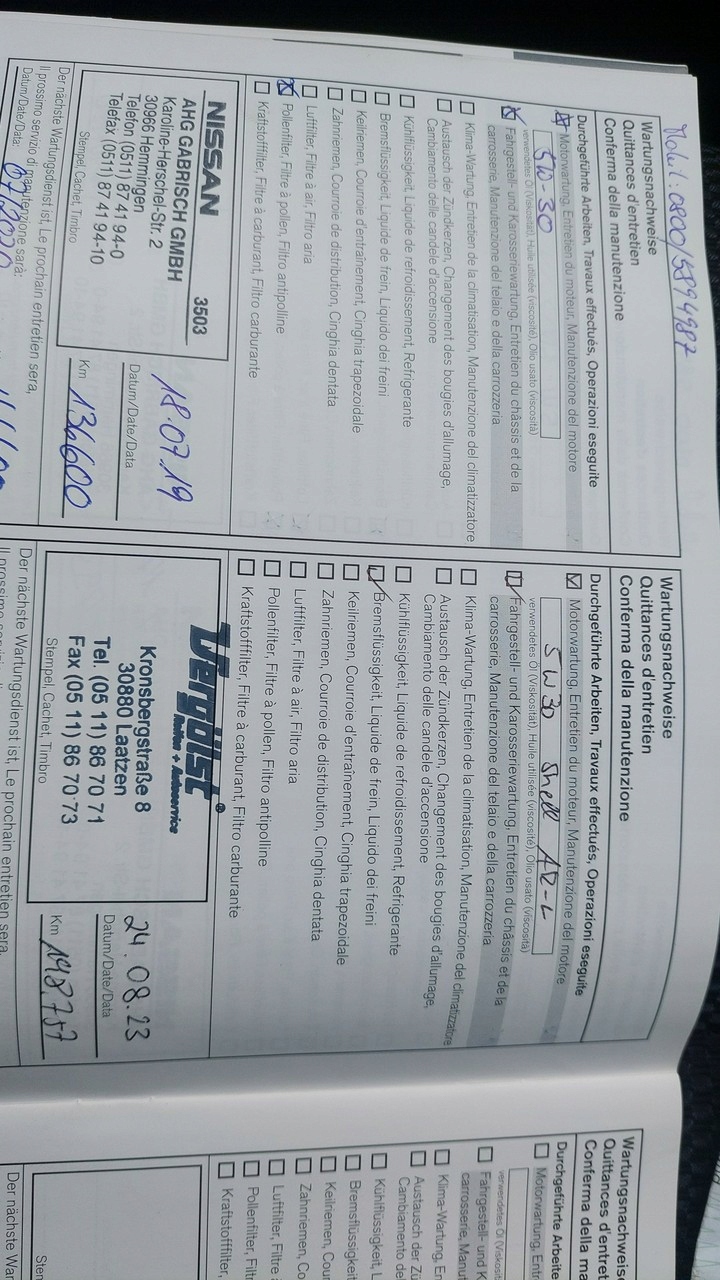 Mobil: 0800/5894987
Wartungsnachweise
Quittances d'entretien
Conferma della manutenzione
Durchgeführte Arbeiten, Travaux effectués, Operazioni eseguite
Motorwartung, Entretien du moteur, Manutenzione del motore
5W-30
verwendetes Öl (Viskosität), Huile utilisée (viscosité), Olio usato (viscosità)
Fahrgestell- und Karosseriewartung, Entretien du châssis et de la
carrosserie, Manutenzione del telaio e della carrozzeria
Klima-Wartung, Entretien de la climatisation, Manutenzione del climatizzatore
Austausch der Zündkerzen, Changement des bougies d'allumage,
Cambiamento delle candele d'accensione
Kühlflüssigkeit, Liquide de refroidissement, Refrigerante
Bremsflüssigkeit, Liquide de frein, Liquido dei freini
Keilriemen, Courroie d'entraînement, Cinghia trapezoidale
Zahnriemen, Courroie de distribution, Cinghia dentata
Luftfilter, Filtre à air, Filtro aria
Pollenfilter, Filtre à pollen, Filtro antipolline
Kraftstofffilter, Filtre à carburant, Filtro carburante
NISSAN 3503
AHG GABRISCH GMBH
Karoline-Herschel-Str. 2
30966 Hemmingen
Telefon (0511) 87 41 94-0
Telefax (0511) 87 41 94-10
Stempel, Cachet, Timbro
18.07.19
Datum/Date/Data
Km 136600
Der nächste Wartungsdienst ist, Le prochain entretien sera,
Il prossimo servizio di manutenzione sarà:
Datum/Date/Data: 07.2020
Wartungsnachweise
Quittances d'entretien
Conferma della manutenzione
Durchgeführte Arbeiten, Travaux effectués, Operazioni eseguite
Motorwartung, Entretien du moteur, Manutenzione del motore
5W30 Shell AR-L
verwendetes Öl (Viskosität), Huile utilisée (viscosité), Olio usato (viscosità)
Fahrgestell- und Karosseriewartung, Entretien du châssis et de la
carrosserie, Manutenzione del telaio e della carrozzeria
Klima-Wartung, Entretien de la climatisation, Manutenzione del climatizzatore
Austausch der Zündkerzen, Changement des bougies d'allumage,
Cambiamento delle candele d'accensione
Kühlflüssigkeit, Liquide de refroidissement, Refrigerante
Bremsflüssigkeit, Liquide de frein, Liquido dei freini
Keilriemen, Courroie d'entraînement, Cinghia trapezoidale
Zahnriemen, Courroie de distribution, Cinghia dentata
Luftfilter, Filtre à air, Filtro aria
Pollenfilter, Filtre à pollen, Filtro antipolline
Kraftstofffilter, Filtre à carburant, Filtro carburante
Vergölst®
Reifen + Autoservice
Kronsbergstraße 8
30880 Laatzen
Tel. (05 11) 86 70 71
Fax (05 11) 86 70 73
Stempel, Cachet, Timbro
24.08.23
Datum/Date/Data
Km 198.757
Der nächste Wartungsdienst ist, Le prochain entretien sera,
Wartungsnachweis
Quittances d'entret
Conferma della ma
Durchgeführte Arbeite
Motorwartung, Entr
verwendetes Öl (Viskosit
Fahrgestell- und K
carrosserie, Manut
Klima-Wartung, En
Austausch der Zü
Cambiamento de
Kühlflüssigkeit, L
Bremsflüssigkeit
Keilriemen, Cou
Zahnriemen, Co
Luftfilter, Filtre
Pollenfilter, Filt
Kraftstofffilter,
Sten
Der nächste War